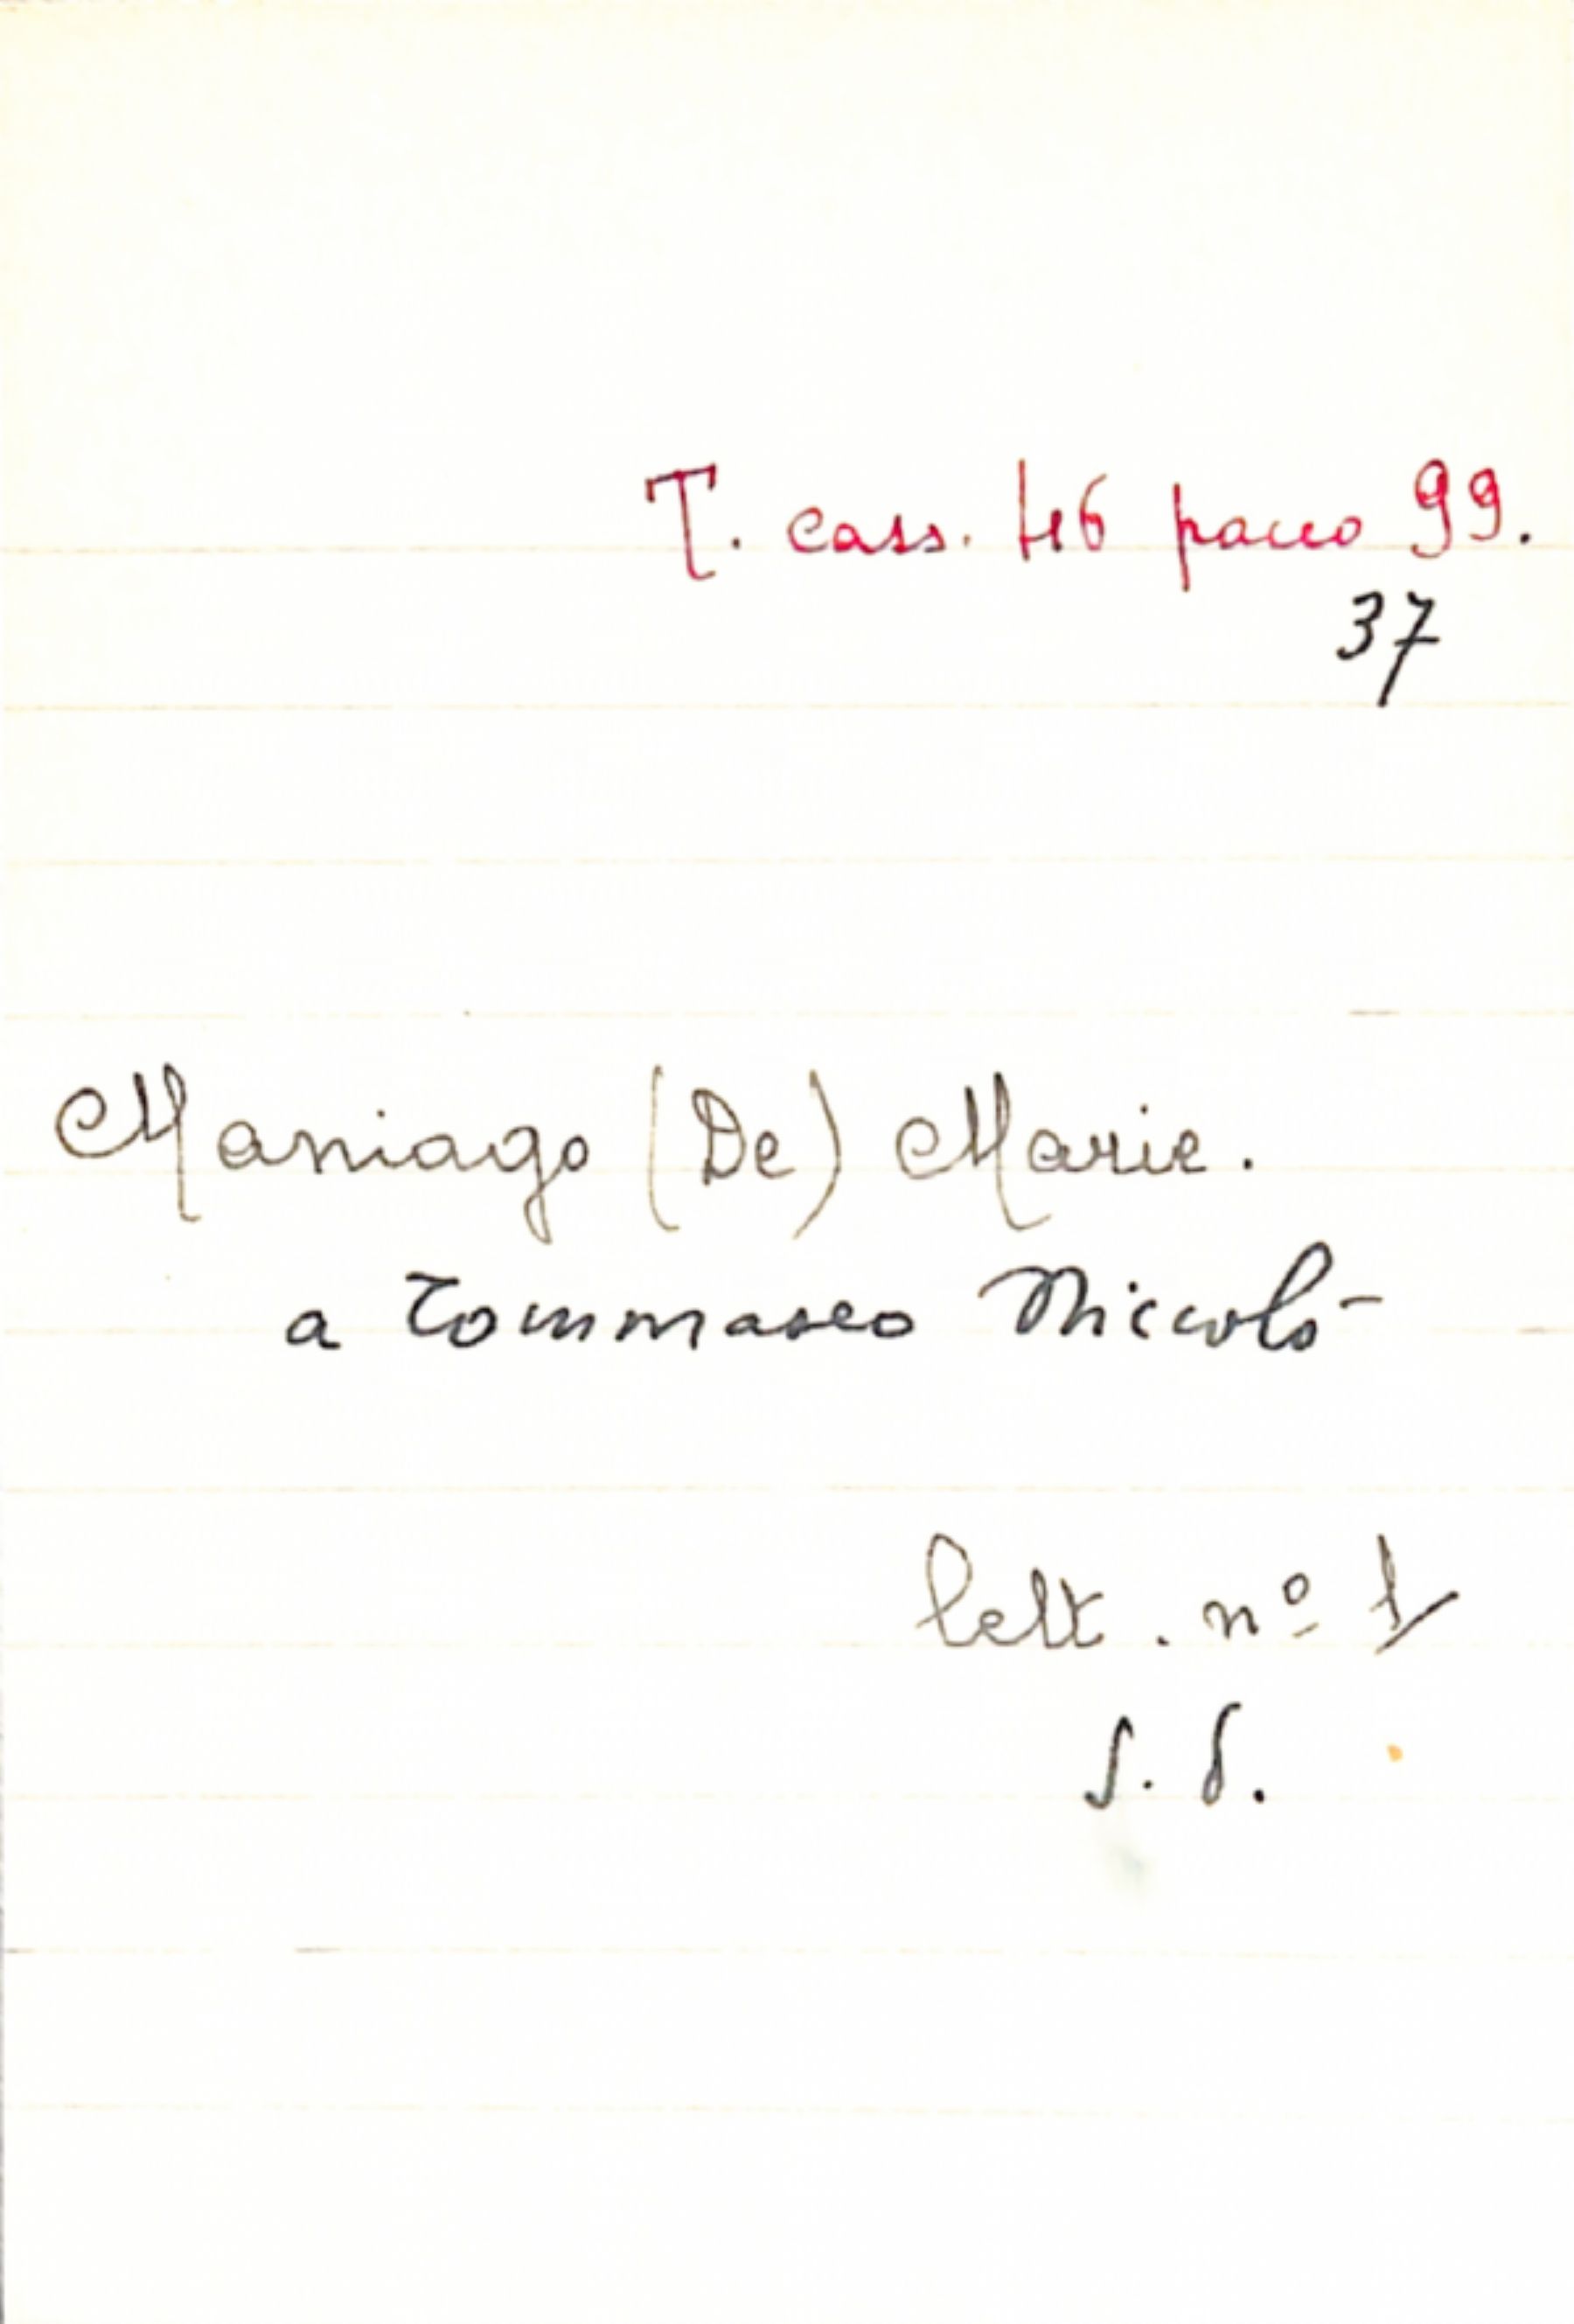 T. cass. 46 pacco 99.
37
Maniago (De) Marie.
a Tommaseo Niccolò
lett. nº 1
s. d.